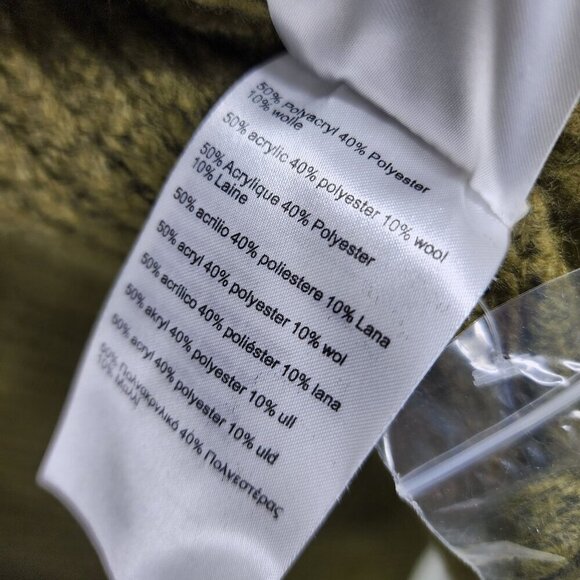 50% Polyacryl 40% Polyester
10% wolle
50% acrylic 40% polyester 10% wool
50% Acrylique 40% Polyester
10% Laine
50% acrilio 40% poliestere 10% Lana
50% acryl 40% polyester 10% wol
50% acrilico 40% poliéster 10% lana
50% akryl 40% polyester 10% ull
50% acryl 40% polyester 10% uld
50% Πολυακρυλικό 40% Πολυεστέρας
10% Μαλλί